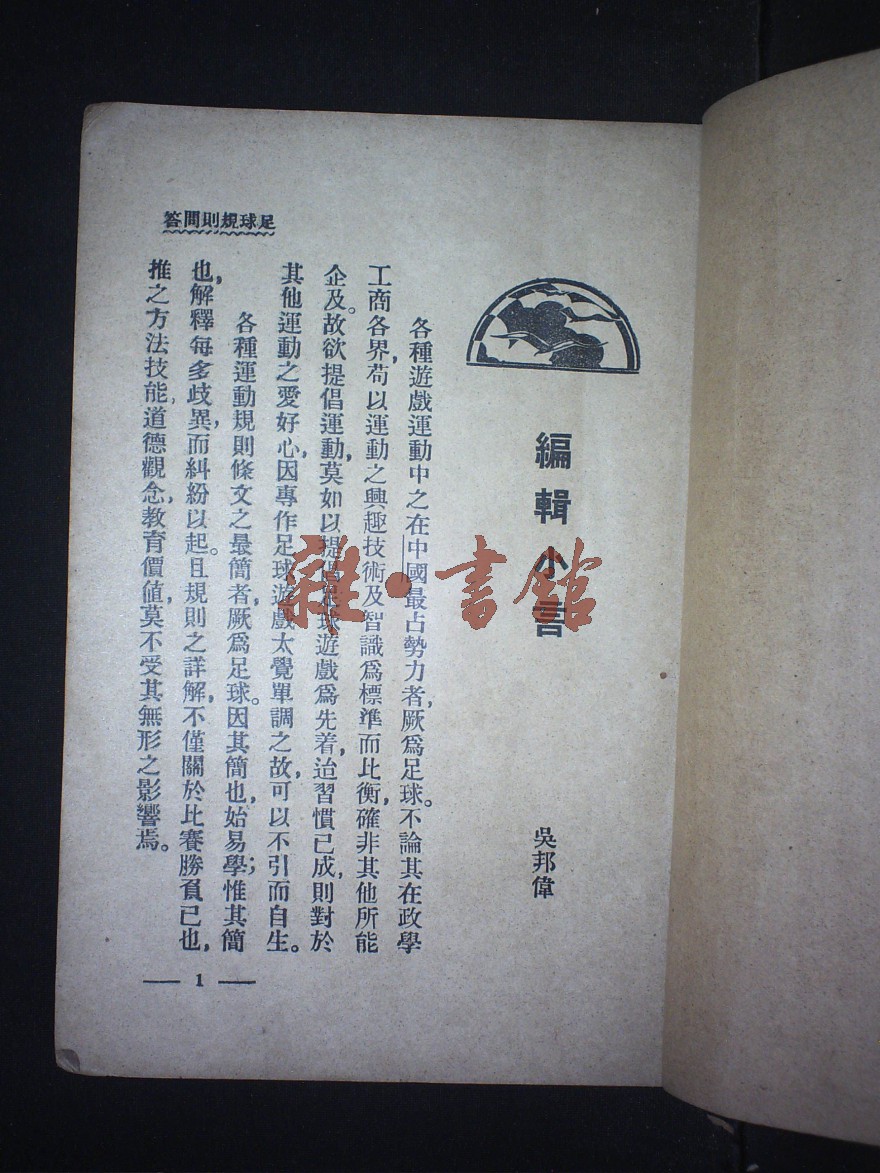 編輯小言
吳邦偉
各種遊戲運動中之在中國最占勢力者,厥爲足球。不論其在政學
工商各界,苟以運動之興趣技術及智識爲標準而比衡,確非其他所能
企及。故欲提倡運動,莫如以提倡足球遊戲爲先着,迨習慣已成,則對於
其他運動之愛好心,因專作足球遊戲太覺單調之故,可以不引而自生。
各種運動規則條文之最簡者,厥爲足球。因其簡也,始易學;惟其簡
也,解釋每多歧異,而糾紛以起。且規則之詳解,不僅關於比賽勝負已也,
推之方法技能,道德觀念,教育價值,莫不受其無形之影響焉。
足球規則問答
1
雜·書館